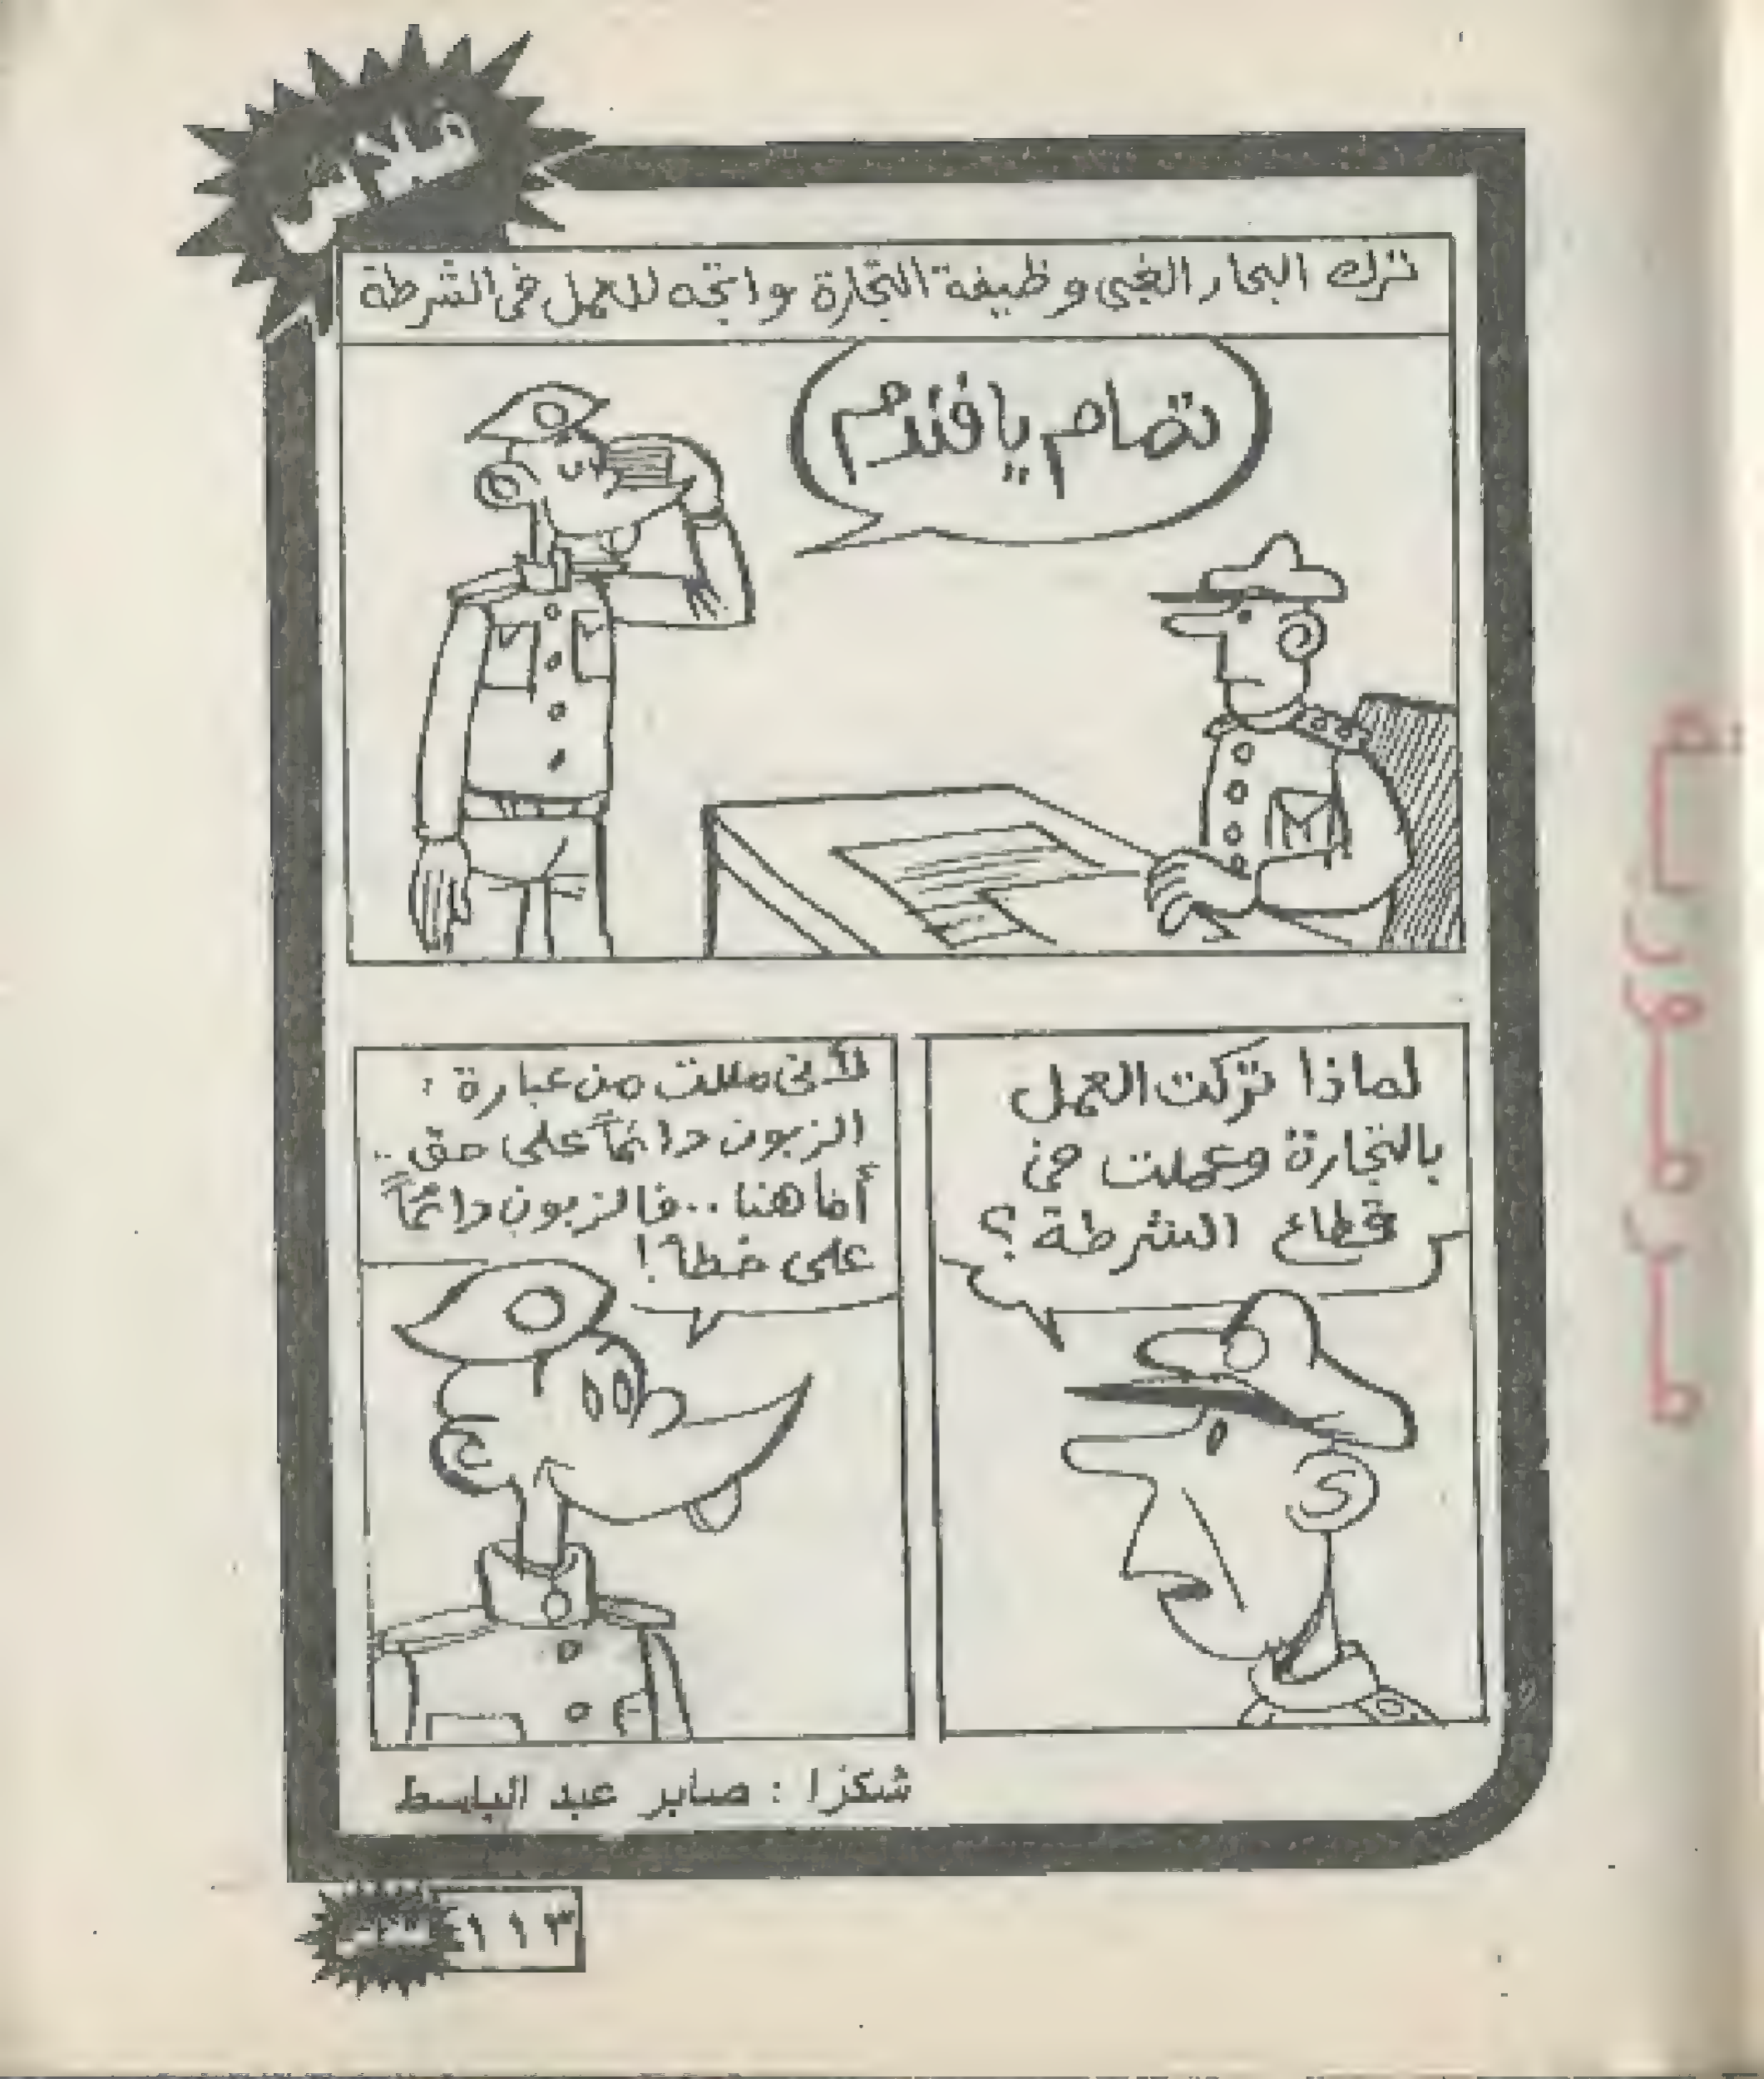 فلاش
ترك البحار الغبى وظيفة التجارة واتجه للعمل فى الشرطة
تمام يا فندم
لماذا تركت العمل
بالتجارة وعملت فى
قطاع الشرطة ؟
لأنى مللت من عبارة :
الزبون دائماً على حق ..
أما هنا .. فالزبون دائماً
على خطأ !
شكرا : صابر عبد الباسط
١١٣
فلاش